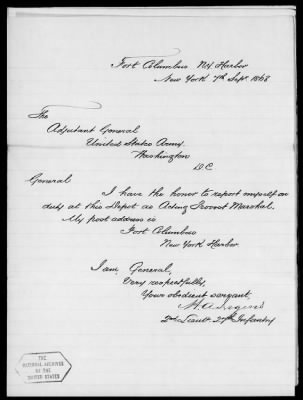 Fort Columbus NY Harbor
New York 7th Sept. 1868
The
Adjutant General
United States Army
Washington
D.C.
General
I have the honor to report myself on
duty at this Depot as Acting Provost Marshal.
My post address is
Fort Columbus
New York Harbor.
I am, General,
Very respectfully,
Your obedient servant,
2nd Lieut. 27th Infantry
THE
NATIONAL ARCHIVES
OF THE
UNITED STATES